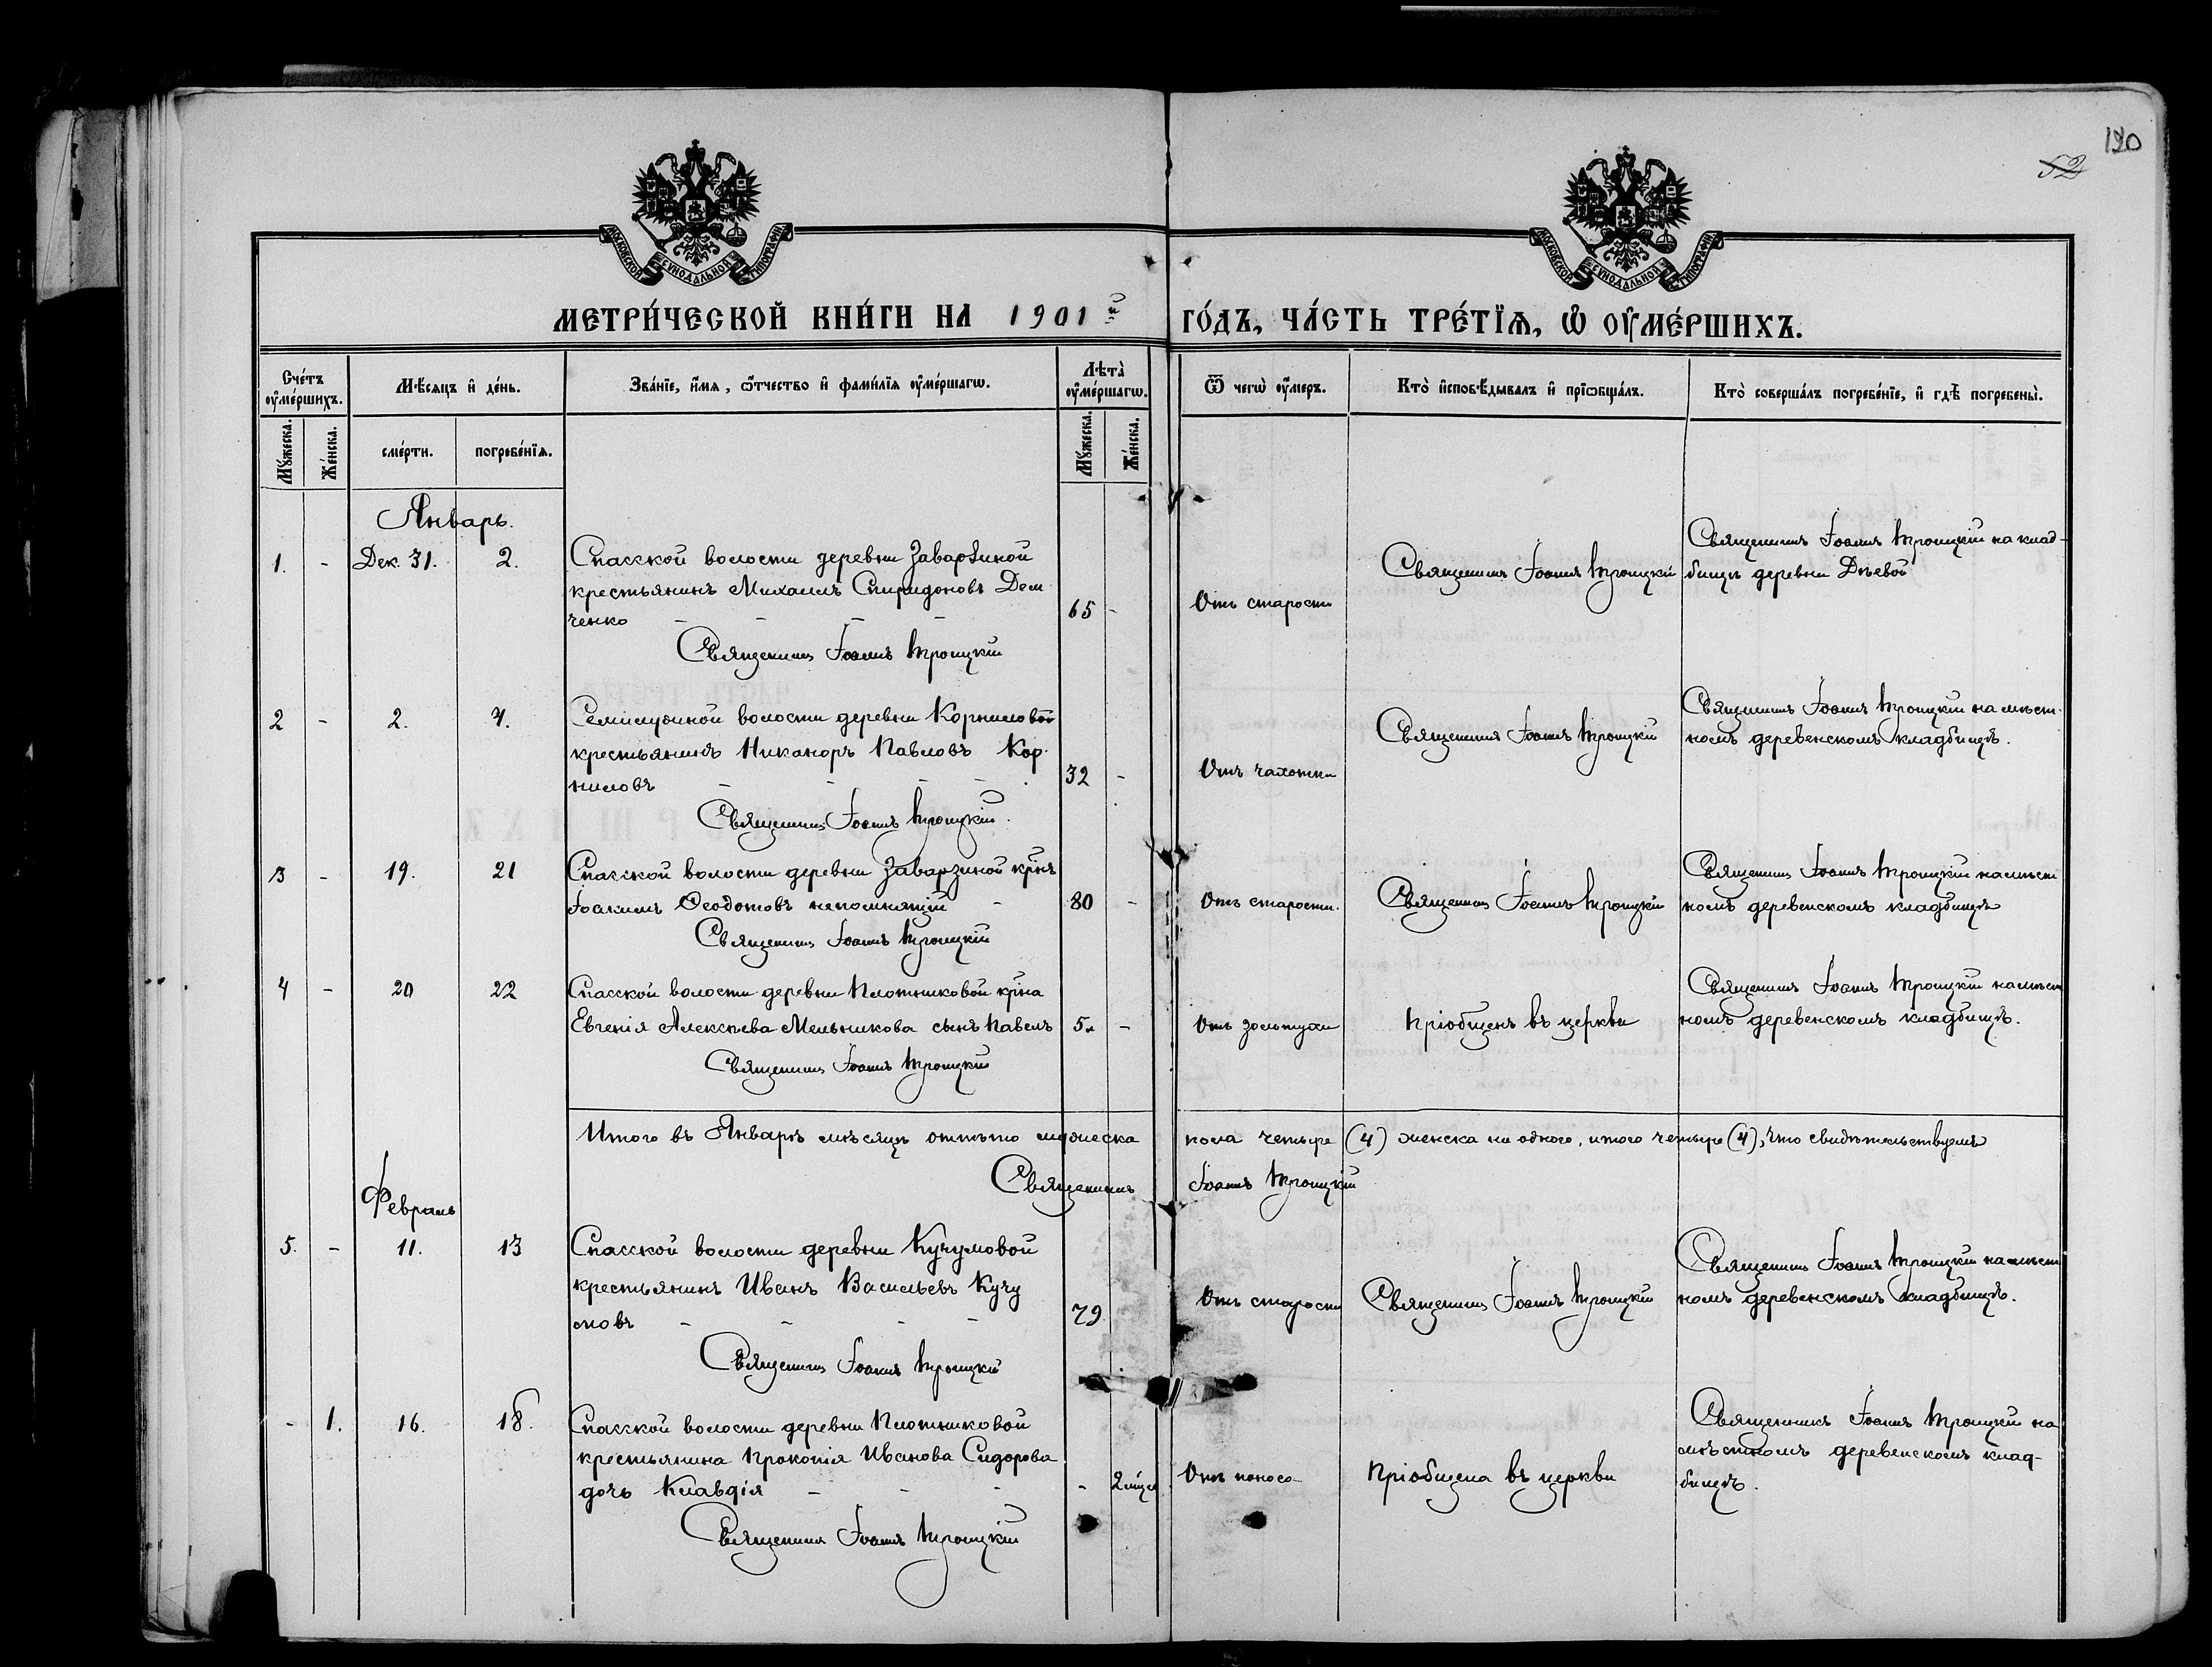 120
52
МОСКОВСКОЙ СѴНОДАЛЬНОЙ ТИПОГРАФІИ
МОСКОВСКОЙ СѴНОДАЛЬНОЙ ТИПОГРАФІИ
МЕТРИ́ЧЕСКОЙ КНИ́ГИ НА 1901й ГО́ДЪ, ЧА́СТЬ ТРЕ́ТЇѦ, Ѡ҆ ОУ҆МЕ́РШИХЪ.
Сче́тъ оу҆ме́ршихъ.
Мѣ́сѧцъ и҆ де́нь.
Зва́нїе, и҆́мѧ, ѻ҆́тчество и҆ фами́лїѧ оу҆ме́ршагѡ.
Лѣта̀ оу҆ме́ршагѡ.
Ѿ чегѡ̀ оу҆́меръ.
Кто̀ и҆сповѣ́дывалъ и҆ прїѡбща́лъ.
Кто̀ соверша́лъ погребе́нїе, и҆ гдѣ̀ погребены̀.
Мꙋ́жеска.
Же́нска.
сме́рти.
погребе́нїѧ.
Мꙋ́жеска.
Же́нска.
Январь.
1. - Дек. 31. 2. Спасской волости деревни Заварзиной
крестьянинъ Михаилъ Спиридоновъ Дем
ченко - - - - 65 -
Священникъ Іоаннъ Троицкій
Отъ старости
Священникъ Іоаннъ Троицкій
Священникъ Іоаннъ Троицкій на клад-
бищѣ деревни Дѣевой
2 - 2. 4. Семилужной волости деревни Корниловой
крестьянинъ Никаноръ Павловъ Кор-
ниловъ - - - - 32 -
Священникъ Іоаннъ Троицкій.
Отъ чахотки
Священникъ Іоаннъ Троицкій
Священникъ Іоаннъ Троицкій на мѣст-
номъ деревенскомъ кладбищѣ.
3 - 19. 21 Спасской волости деревни Заварзиной крнъ
Іоакимъ Ѳеодотовъ непомнящій - 80 -
Священникъ Іоаннъ Троицкій
Отъ старости.
Священникъ Іоаннъ Троицкій
Священникъ Іоаннъ Троицкій на мѣст
номъ деревенскомъ кладбищѣ
4 - 20 22 Спасской волости деревни Плотниковой крна
Евгенія Алексѣева Мельникова сынъ Павелъ 5 л -
Священникъ Іоаннъ Троицкій
Отъ золотухи
Пріобщенъ въ церкви
Священникъ Іоаннъ Троицкій на мѣст
номъ деревенскомъ кладбищѣ.
Итого въ Январѣ мѣсяцѣ отпѣто мужеска пола четыре (4) женска ни одного, итого четыре (4), что свидѣтельствуемъ
Священникъ Іоаннъ Троицкій
Февраль
5. - 11. 13 Спасской волости деревни Кучумовой
крестьянинъ Иванъ Васильевъ Кучу
мовъ - - - - 79.
Священникъ Іоаннъ Троицкій
Отъ старости
Священникъ Іоаннъ Троицкій
Священникъ Іоаннъ Троицкій на мѣст
номъ деревенскомъ кладбищѣ.
- 1. 16. 18. Спасской волости деревни Плотниковой
крестьянина Прокопія Иванова Сидорова
дочь Клавдія - - - - 2 мѣц
Священникъ Іоаннъ Троицкій
Отъ поноса
Пріобщена въ церкви
Священникъ Іоаннъ Троицкій на
мѣстномъ деревенскомъ клад-
бищѣ.